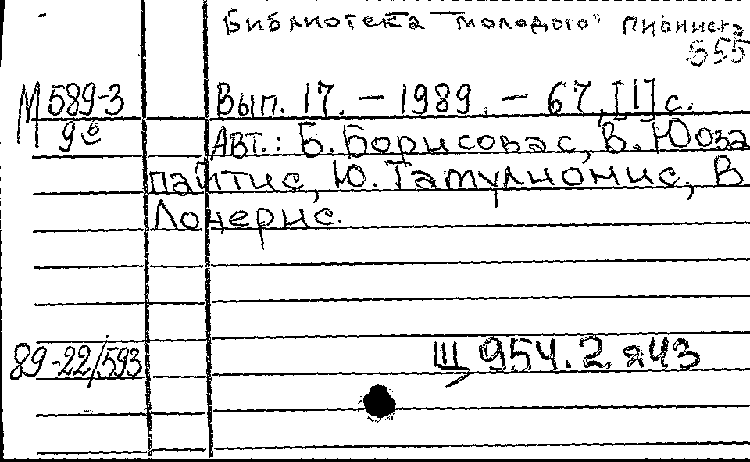 Библиотека молодого пианиста
555
М 589-3 Вып. 17. – 1989. – 67, [1] с.
9 Авт.: Б. Борисовас, В. Юоза
пайтис, Ю. Тамулионис, В
Лочерис.
89-22/593 Щ 954.2 я43